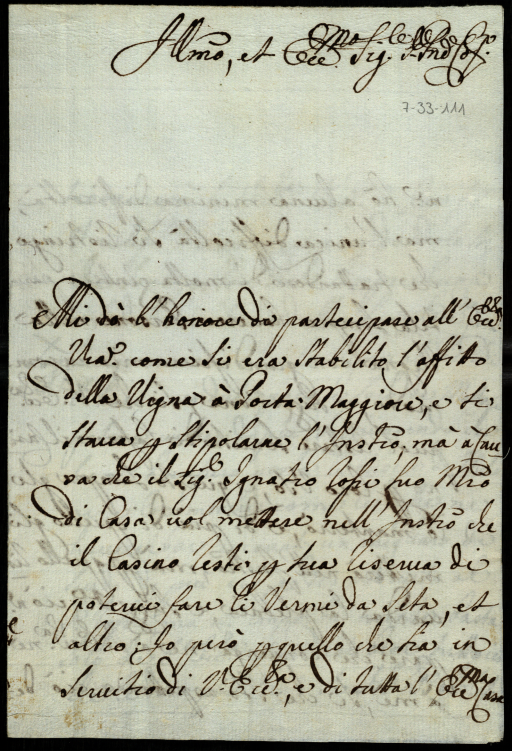 Illmo, et Eccmo Sig.
7-33-111
Mi dò l'honore di partecipare all' Ecc.
Vra. come si era stabilito l'affitto
della Vigna à Porta Maggiore, e si
staua p stipolarne l'Instro, mà à cau
sa che il Sig. Ignatio suo Mro
di Casa vol mettere nell'Instro che
il Casino resti p sua riserua di
poterui fare li Vermi da Seta, et
altro: Io però p quello che sia in
seruitio di V. Ecc.a, e di tutta l' Eccma Casa